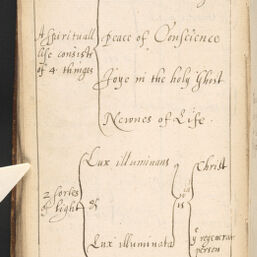 A spirituall
life consists
of 4 things
peace of Conscience
Joye in the holy Ghost
Newnes of Life.
2 sortes
of light
Lux illuminans
&
Lux illuminata
is
Christ
y regenerat
person